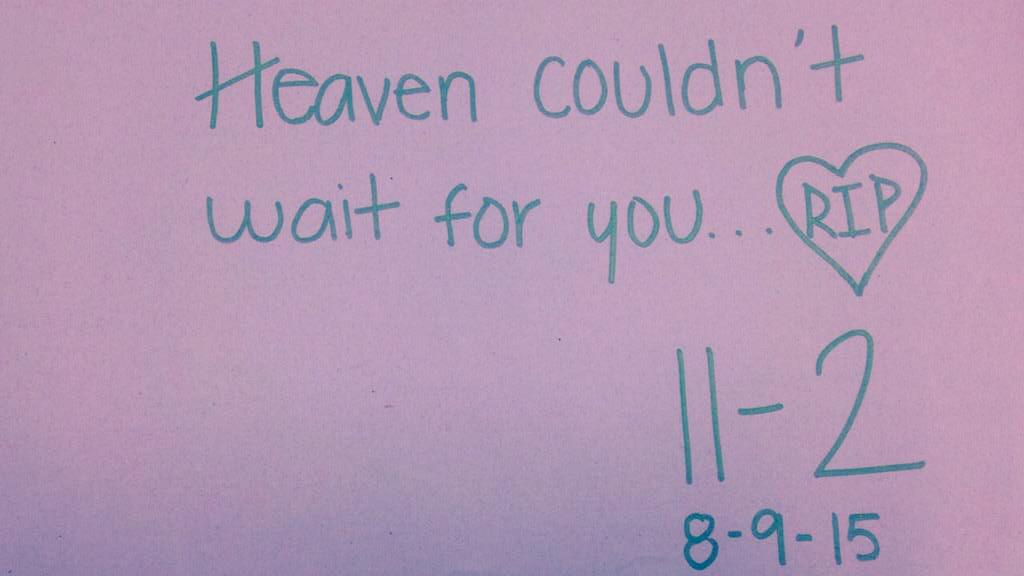 Heaven couldn't
wait for you... RIP
11-2
8-9-15